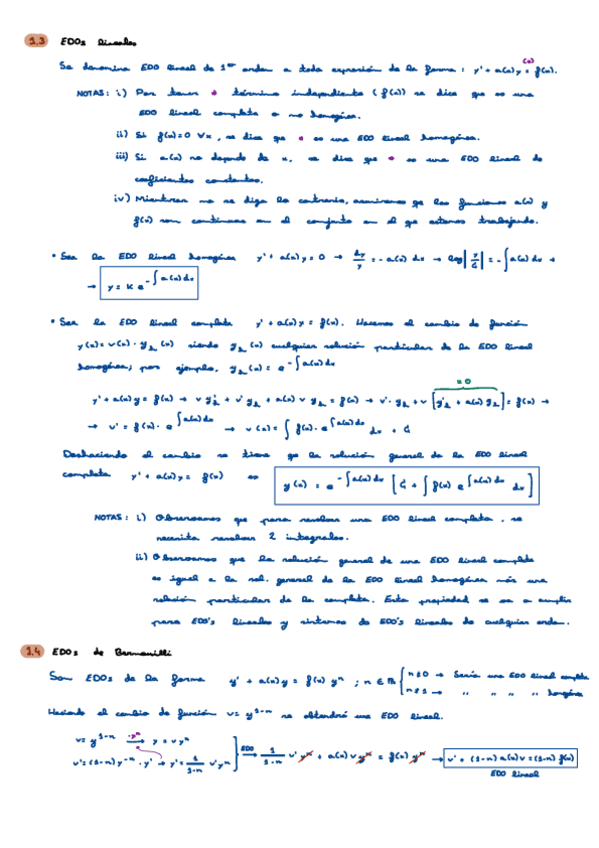 1.3 EDOs lineales
Se denomina EDO lineal de 1er orden a toda expresión de la forma: y' + a(x) y = f(x). (*)
NOTAS: i) Por tener * término independiente (f(x)) se dice que es una
EDO lineal completa o no homogénea.
ii) Si f(x)=0 ∀x, se dice que * es una EDO lineal homogénea.
iii) Si a(x) no depende de x, se dice que * es una EDO lineal de
coeficientes constantes.
iv) Mientras no se diga lo contrario, asumiremos que las funciones a(x) y
f(x) son continuas en el conjunto en el que estemos trabajando.
• Sea la EDO lineal homogénea y' + a(x) y = 0 → dy/y = -a(x) dx → log|y/C| = -∫a(x) dx →
→ y = K e^(-∫a(x)dx)
• Sea la EDO lineal completa y' + a(x) y = f(x). Hacemos el cambio de función
y(x) = v(x) · y_h(x) siendo y_h(x) cualquier solución particular de la EDO lineal
homogénea; por ejemplo, y_h(x) = e^(-∫a(x)dx)
= 0
y' + a(x) y = f(x) → v y'_h + v' y_h + a(x) v y_h = f(x) → v' · y_h + v [y'_h + a(x) y_h] = f(x) →
→ v' = f(x) · e^(∫a(x)dx) → v(x) = ∫ f(x) · e^(∫a(x)dx) dx + C
Deshaciendo el cambio se tiene que la solución general de la EDO lineal
completa y' + a(x) y = f(x) es y(x) = e^(-∫a(x)dx) [C + ∫ f(x) e^(∫a(x)dx) dx]
NOTAS: i) Observamos que para resolver una EDO lineal completa, se
necesita resolver 2 integrales.
ii) Observamos que la solución general de una EDO lineal completa
es igual a la sol. general de la EDO lineal homogénea más una
solución particular de la completa. Esta propiedad se va a cumplir
para EDO's lineales y sistemas de EDO's lineales de cualquier orden.
1.4 EDOs de Bernouilli
Son EDOs de la forma y' + a(x) y = f(x) y^n ; n ∈ ℝ { n=0 → Sería una EDO lineal completa
n=1 → " " " " homogénea
Haciendo el cambio de función v = y^(1-n) se obtendrá una EDO lineal.
v = y^(1-n) ·y^n → y = v y^n
v' = (1-n) y^(-n) · y' → y' = 1/(1-n) v' y^n } EDO → 1/(1-n) v' y^n + a(x) v y^n = f(x) y^n → v' + (1-n) a(x) v = (1-n) f(x)
EDO lineal